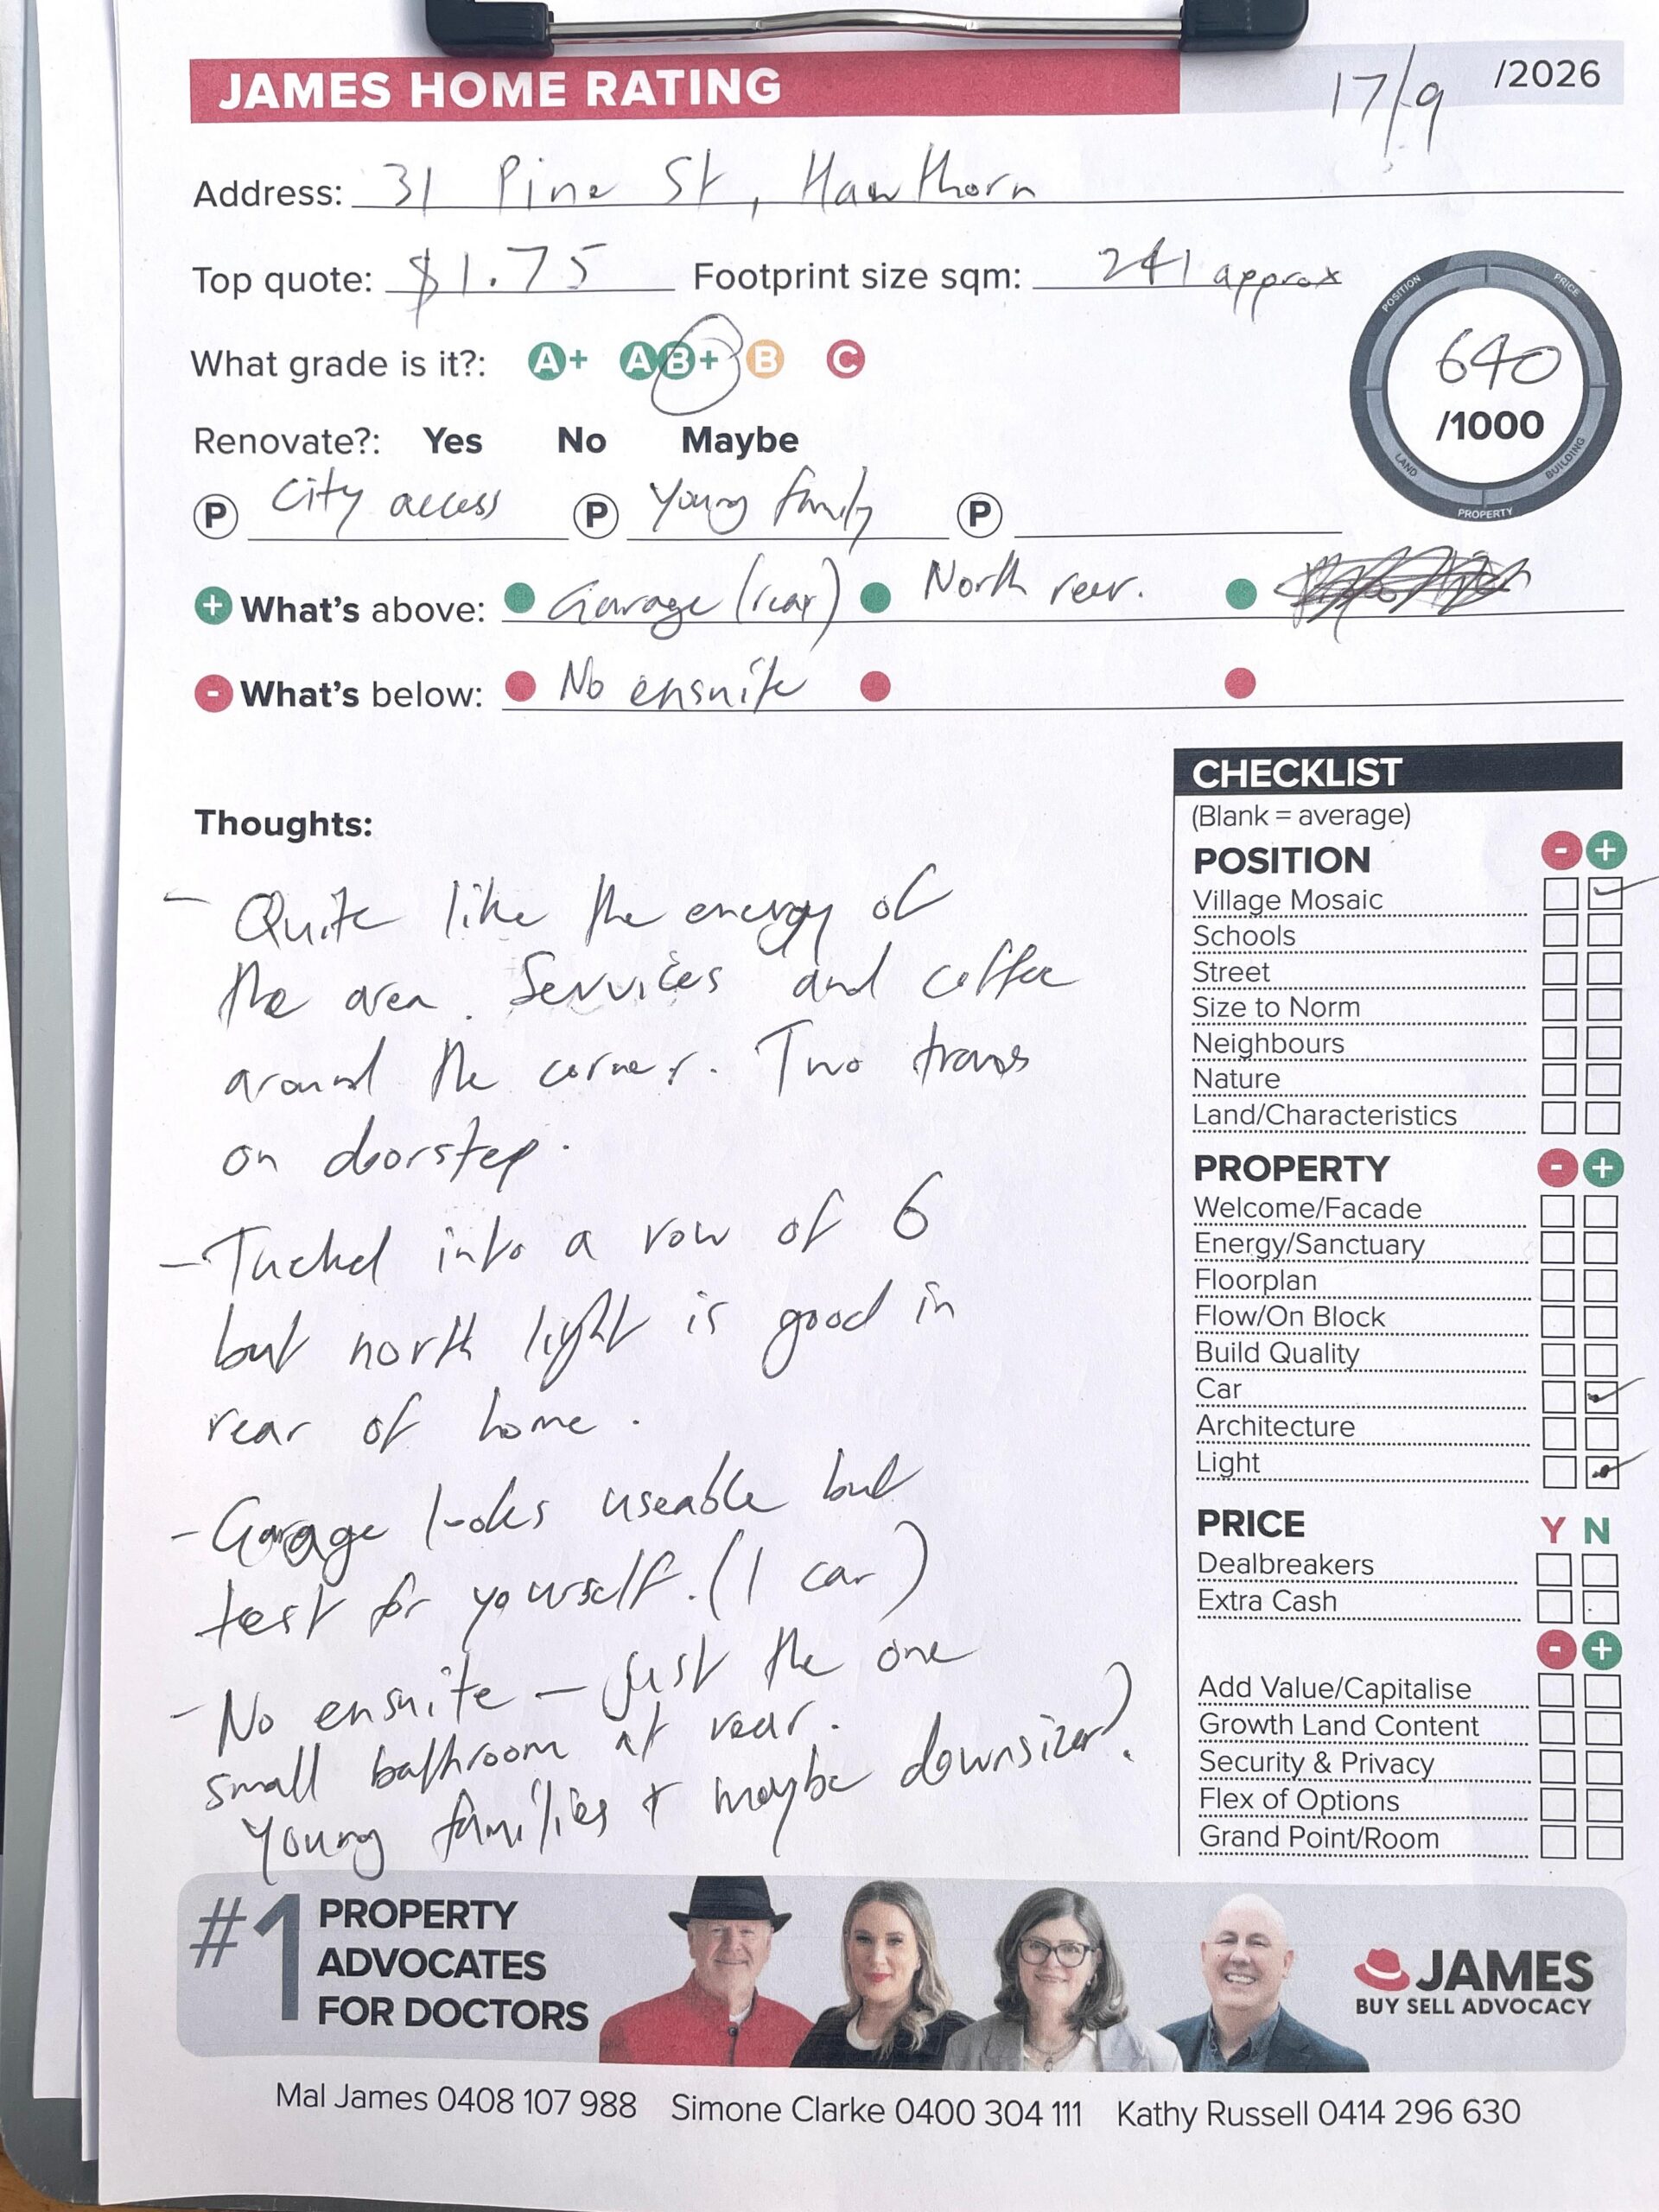 JAMES HOME RATING 17/9 /2026
Address: 31 Pine St, Hawthorn
Top quote: $1.75 Footprint size sqm: 241 approx
What grade is it?: A+ A B+ B C
POSITION PRICE BUILDING PROPERTY LAND
640
/1000
Renovate?: Yes No Maybe
P City access P Young family P
+ What's above: Garage (rear) North rear.
- What's below: No ensuite
Thoughts:
- Quite like the energy of
the area. Services and coffee
around the corner. Two trams
on doorstep.
- Tucked into a row of 6
but north light is good in
rear of home.
- Garage looks useable but
test for yourself. (1 car)
- No ensuite - just the one
small bathroom at rear.
Young families + maybe downsizer?
CHECKLIST
(Blank = average)
POSITION - +
Village Mosaic
Schools
Street
Size to Norm
Neighbours
Nature
Land/Characteristics
PROPERTY - +
Welcome/Facade
Energy/Sanctuary
Floorplan
Flow/On Block
Build Quality
Car
Architecture
Light
PRICE Y N
Dealbreakers
Extra Cash
- +
Add Value/Capitalise
Growth Land Content
Security & Privacy
Flex of Options
Grand Point/Room
#1 PROPERTY
ADVOCATES
FOR DOCTORS
JAMES
BUY SELL ADVOCACY
Mal James 0408 107 988 Simone Clarke 0400 304 111 Kathy Russell 0414 296 630